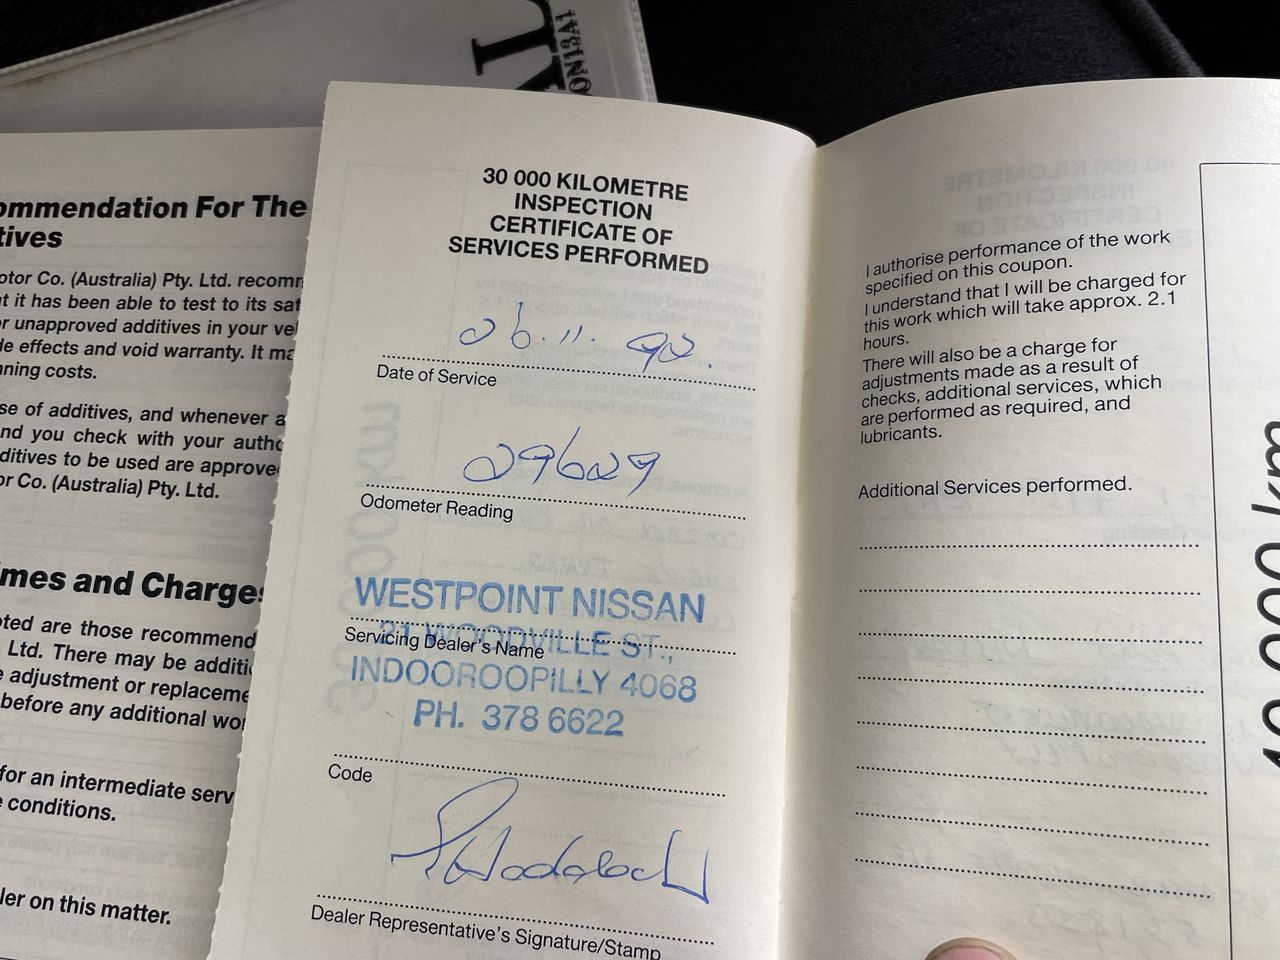 ON13A1
ommendation For The
tives
otor Co. (Australia) Pty. Ltd. recomm
t it has been able to test to its sat
or unapproved additives in your veh
de effects and void warranty. It ma
nning costs.
se of additives, and whenever a
nd you check with your autho
ditives to be used are approve
or Co. (Australia) Pty. Ltd.
mes and Charges
oted are those recommend
Ltd. There may be additi
e adjustment or replaceme
before any additional wor
for an intermediate serv
e conditions.
ler on this matter.
30 000 KILOMETRE
INSPECTION
CERTIFICATE OF
SERVICES PERFORMED
26.11.90.
Date of Service
29629
Odometer Reading
WESTPOINT NISSAN
Servicing Dealer's Name
21 WOODVILLE ST.,
INDOOROOPILLY 4068
PH. 378 6622
Code
Dealer Representative's Signature/Stamp
I authorise performance of the work
specified on this coupon.
I understand that I will be charged for
this work which will take approx. 2.1
hours.
There will also be a charge for
adjustments made as a result of
checks, additional services, which
are performed as required, and
lubricants.
Additional Services performed.
40 000 km